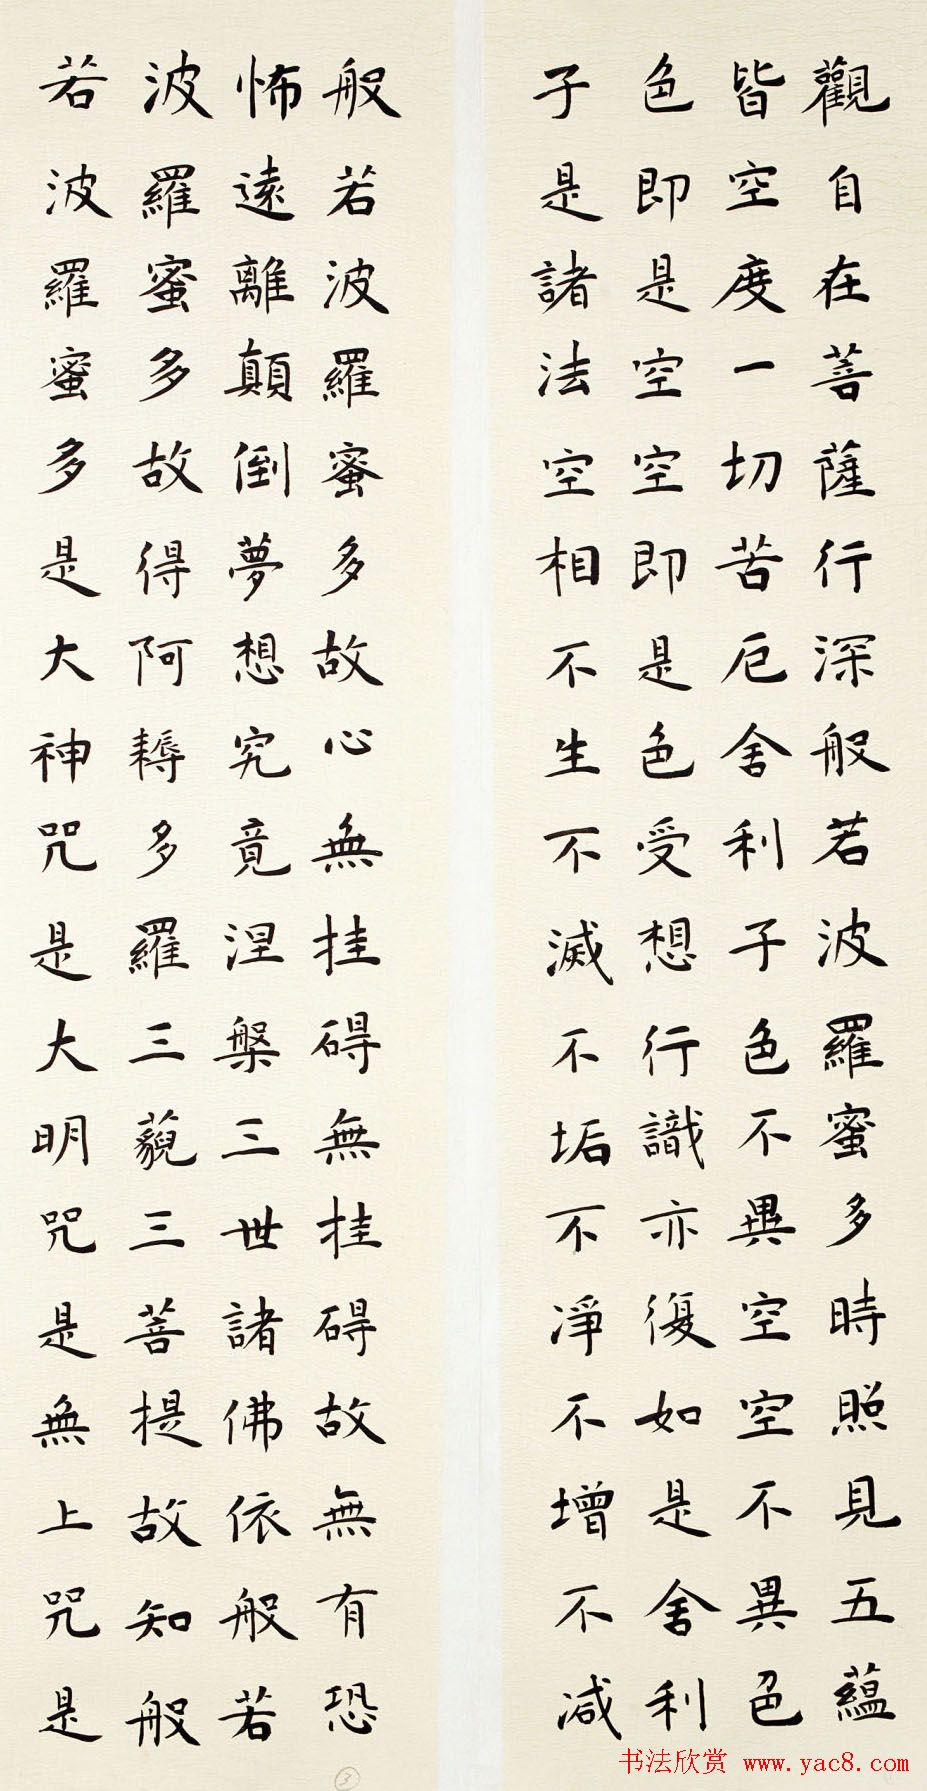 觀自在菩薩行深般若波羅蜜多時照見五蘊
皆空度一切苦厄舍利子色不異空空不異色
色即是空空即是色受想行識亦復如是舍利
子是諸法空相不生不滅不垢不淨不增不減
般若波羅蜜多故心無挂碍無挂碍故無有恐
怖遠離顛倒夢想究竟涅槃三世諸佛依般若
波羅蜜多故得阿耨多羅三藐三菩提故知般
若波羅蜜多是大神咒是大明咒是無上咒是
3
书法欣赏 www.yac8.com